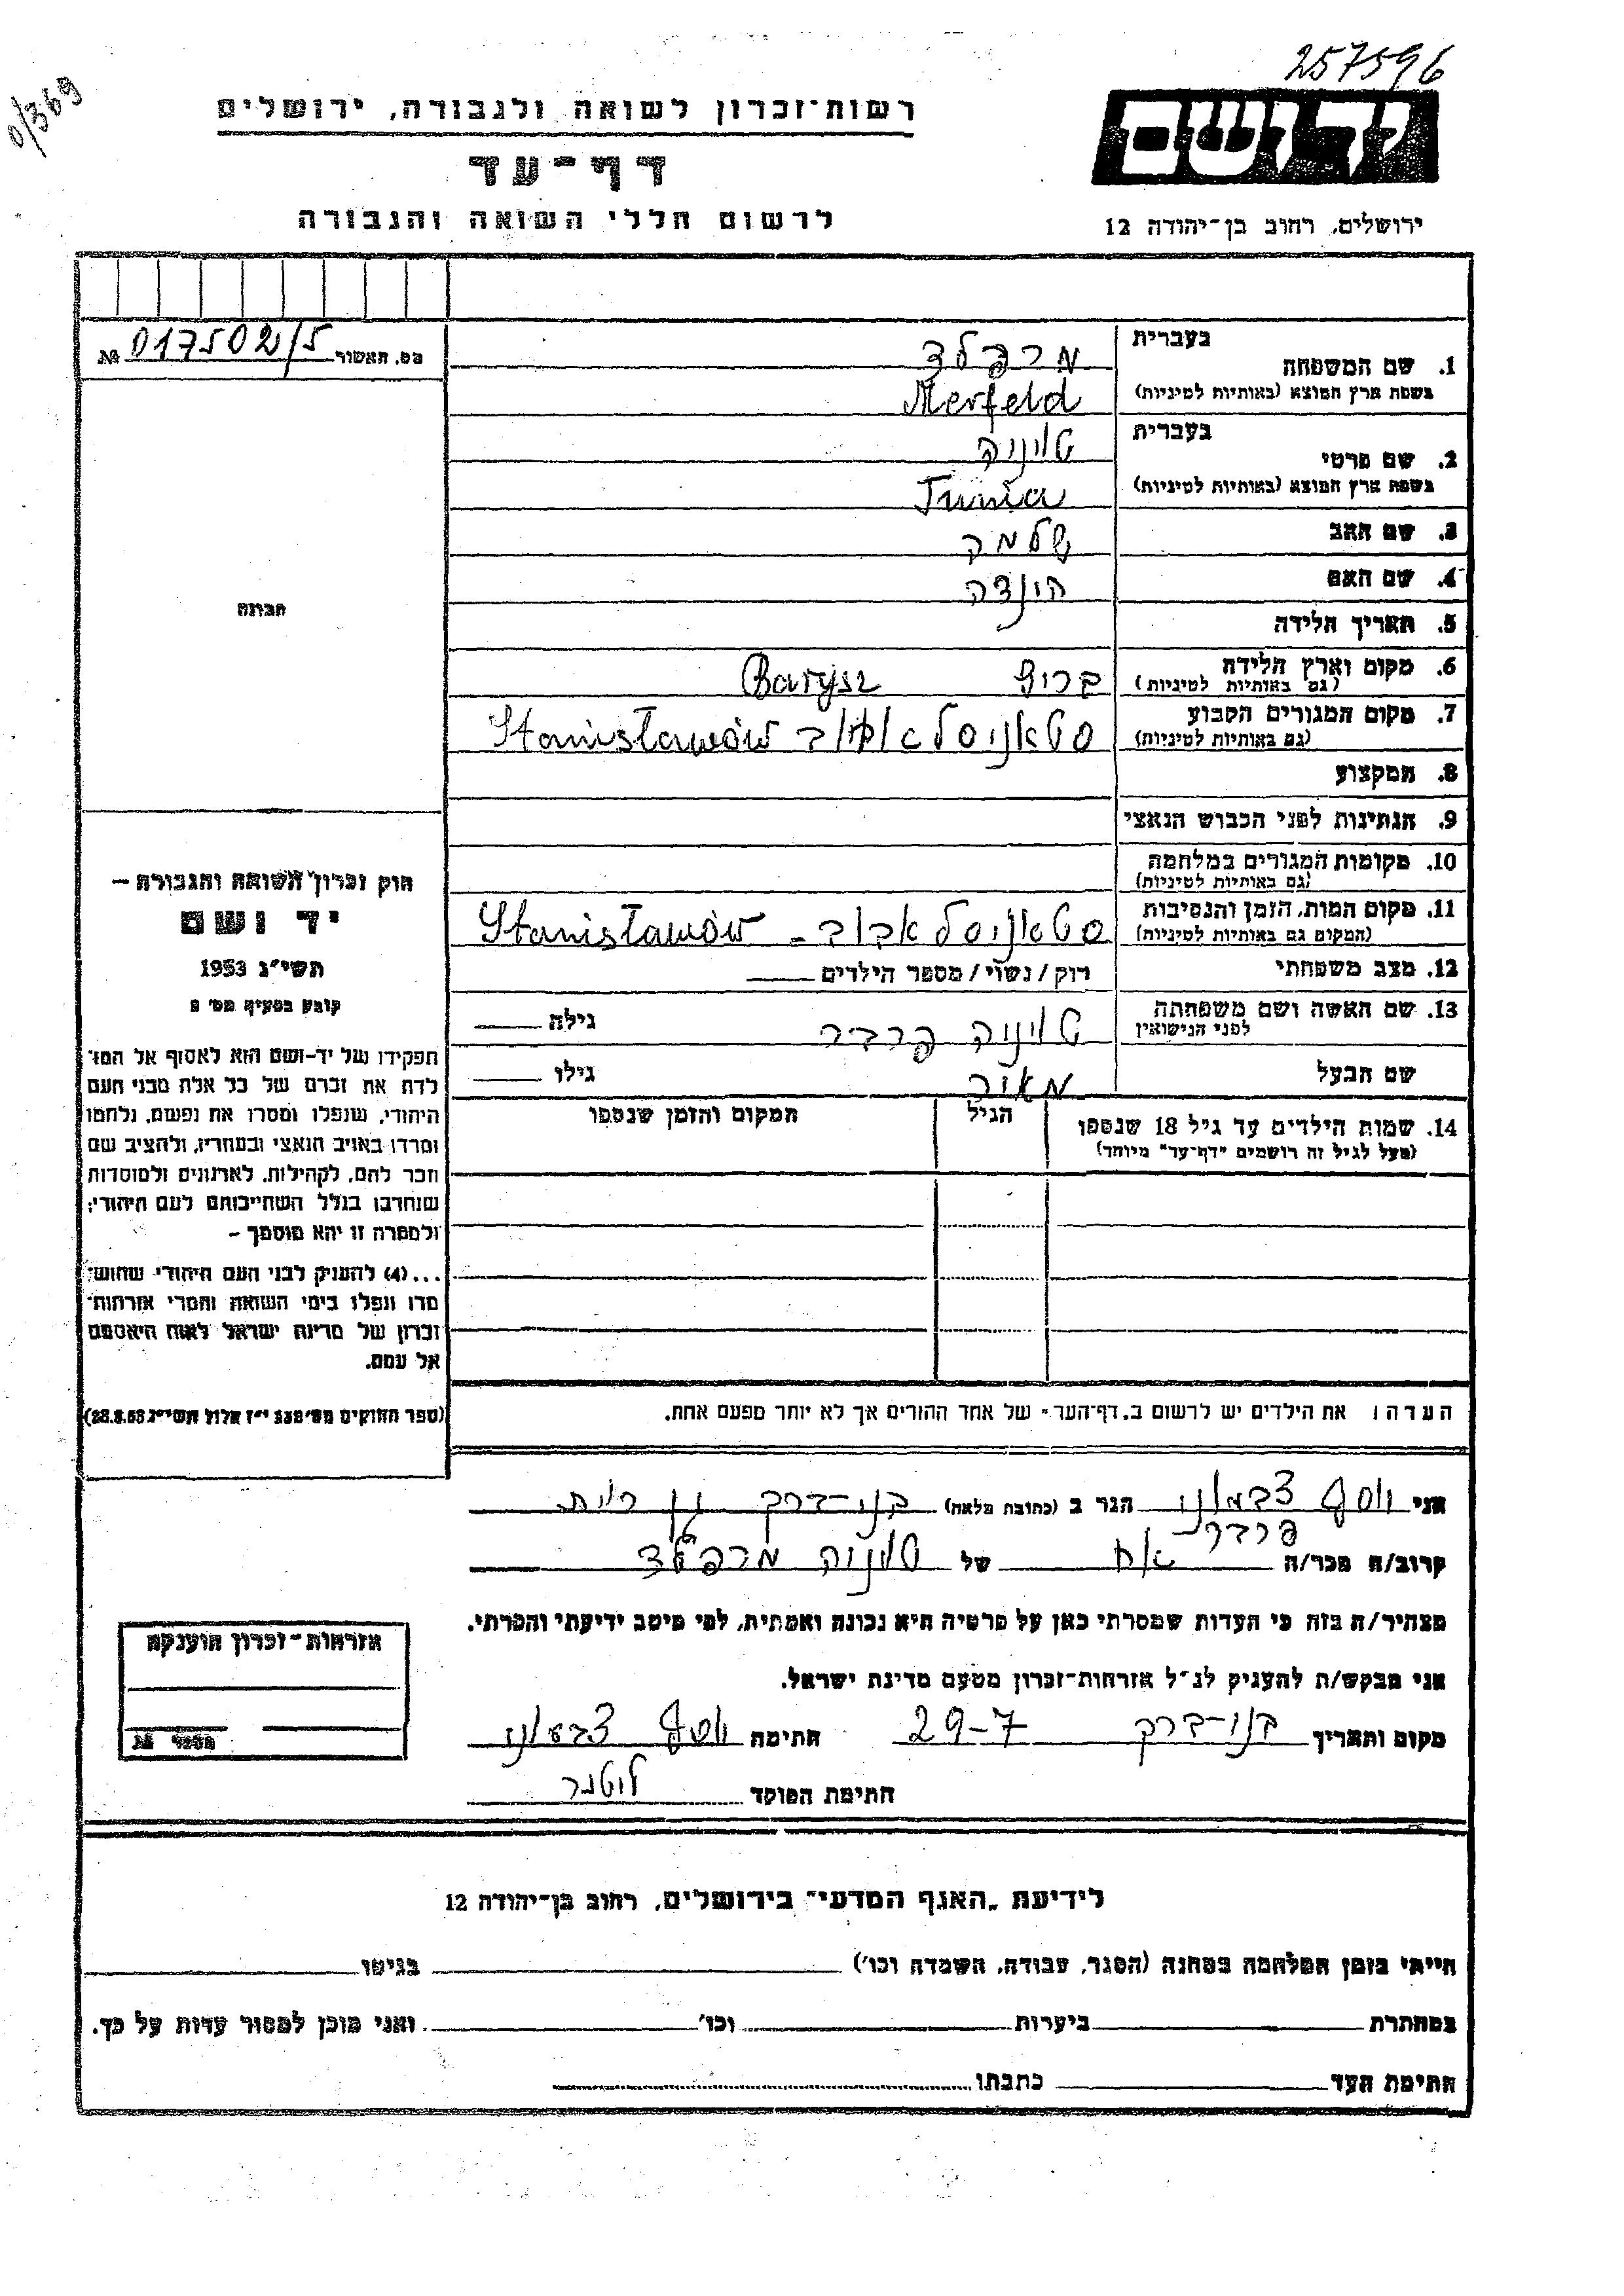 257596
0/369
יד ושם
רשות־זכרון לשואה ולגבורה, ירושלים
דף־עד
לרשום חללי השואה והגבורה
ירושלים, רחוב בן־יהודה 12
מס. תאשור 017502/5 №
בעברית
1. שם המשפחה מרפלד
בשפת ארץ המוצא (באותיות לטיניות) Merfeld
בעברית
2. שם פרטי טוניה
בשפת ארץ המוצא (באותיות לטיניות) Tunia
3. שם האב שלמה
4. שם האם הינדה
5. תאריך הלידה
6. מקום וארץ הלידה Barysz
(גם באותיות לטיניות)
7. מקום המגורים הקבוע Stanisławów
(גם באותיות לטיניות)
8. המקצוע
9. הנתינות לפני הכבוש הנאצי
10. מקומות המגורים במלחמה
(גם באותיות לטיניות)
11. מקום המות, הזמן והנסיבות סטאניסלאבוב - Stanisławów
(המקום גם באותיות לטיניות)
12. מצב משפחתי רוק/נשוי/מספר הילדים
13. שם האשה ושם משפחתה טוניה פרבר גילה
לפני הנישואין
שם הבעל מאיר גילו
14. שמות הילדים עד גיל 18 שנספו הגיל המקום והזמן שנספו
(מעל לגיל זה רושמים "דף־עד" מיוחד)
הערה: את הילדים יש לרשום ב„דף־העד" של אחד ההורים אך לא יותר מפעם אחת.
חברנה
חוק זכרון השואה והגבורה –
יד ושם
תשי"ג 1953
קובע בסעיף מס' 2
תפקידו של יד-ושם הוא לאסוף אל המו־
לדת את זכרם של כל אלה מבני העם
היהודי, שנפלו ומסרו את נפשם, נלחמו
ומרדו באויב הנאצי ובעוזריו, ולהציב שם
וזכר להם, לקהילות, לארגונים ולמוסדות
שנחרבו בגלל השתייכותם לעם היהודי;
ולמטרה זו יהא מוסמך –
...(4) להעניק לבני העם היהודי שהוש־
מדו ונפלו בימי השואה והמרי אזרחות־
זכרון של מדינת ישראל לאות היאספם
אל עמם.
(ספר החוקים מס' 132 י"ז אלול תשי"ג 28.8.53)
אני יוסף צבעוני הגר ב (כתובת מלאה) בני-ברק
פרבר
קרוב/ה מכר/ה אח של טוניה מרפלד
מצהיר/ה בזה כי העדות שמסרתי כאן על פרטיה היא נכונה ואמתית, לפי מיטב ידיעתי והכרתי.
אני מבקש/ת להעניק לנ"ל אזרחות־זכרון מטעם מדינת ישראל.
מקום ותאריך בני-ברק 29-7 חתימה יוסף צבעוני
חתימת הפוקד
אזרחות־זכרון הוענקה
מספר №
לידיעת „האגף המדעי" בירושלים, רחוב בן־יהודה 12
הייתי בזמן המלחמה במחנה (הסגר, עבודה, השמדה וכו') בגיטו
במחתרת ביערות וכו' ואני מוכן למסור עדות על כך.
חתימת העד כתבתו